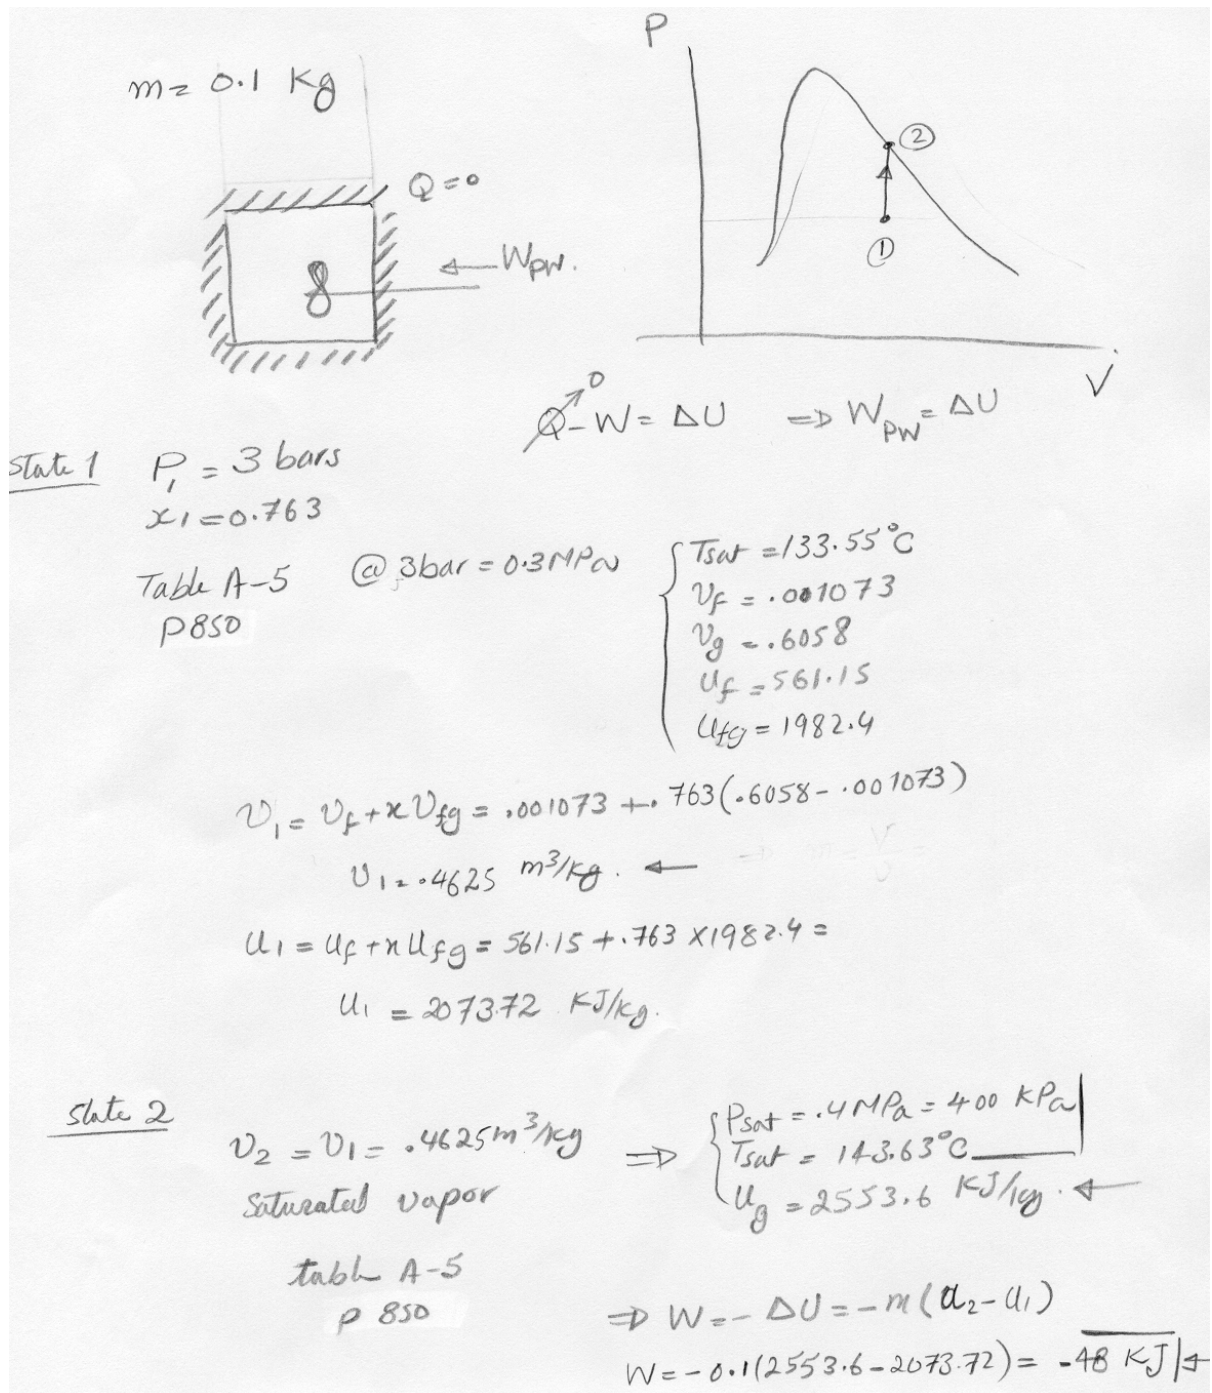 m= 0.1 Kg
Q=0
W_PW.
P
②
①
V
Q⁰-W= ΔU ⇒ W_PW= ΔU
State 1 P₁ = 3 bars
x₁=0.763
Table A-5 @ 3bar = 0.3MPa
P850
Tsat =133.55°C
v_f = .001073
v_g = .6058
u_f =561.15
u_fg = 1982.4
v₁= v_f+x v_fg = .001073 +.763(.6058-.001073)
v₁=.4625 m³/kg. ←
u₁= u_f+x u_fg= 561.15+.763 ×1982.4=
u₁ = 2073.72 KJ/kg.
State 2
v₂ = v₁= .4625m³/kg ⇒
Saturated vapor
Psat = .4MPa = 400 KPa
Tsat = 143.63°C
u_g = 2553.6 KJ/kg. ←
table A-5
P 850
⇒ W=- ΔU=-m(u₂-u₁)
W=-0.1(2553.6-2073.72)= -48 KJ ←